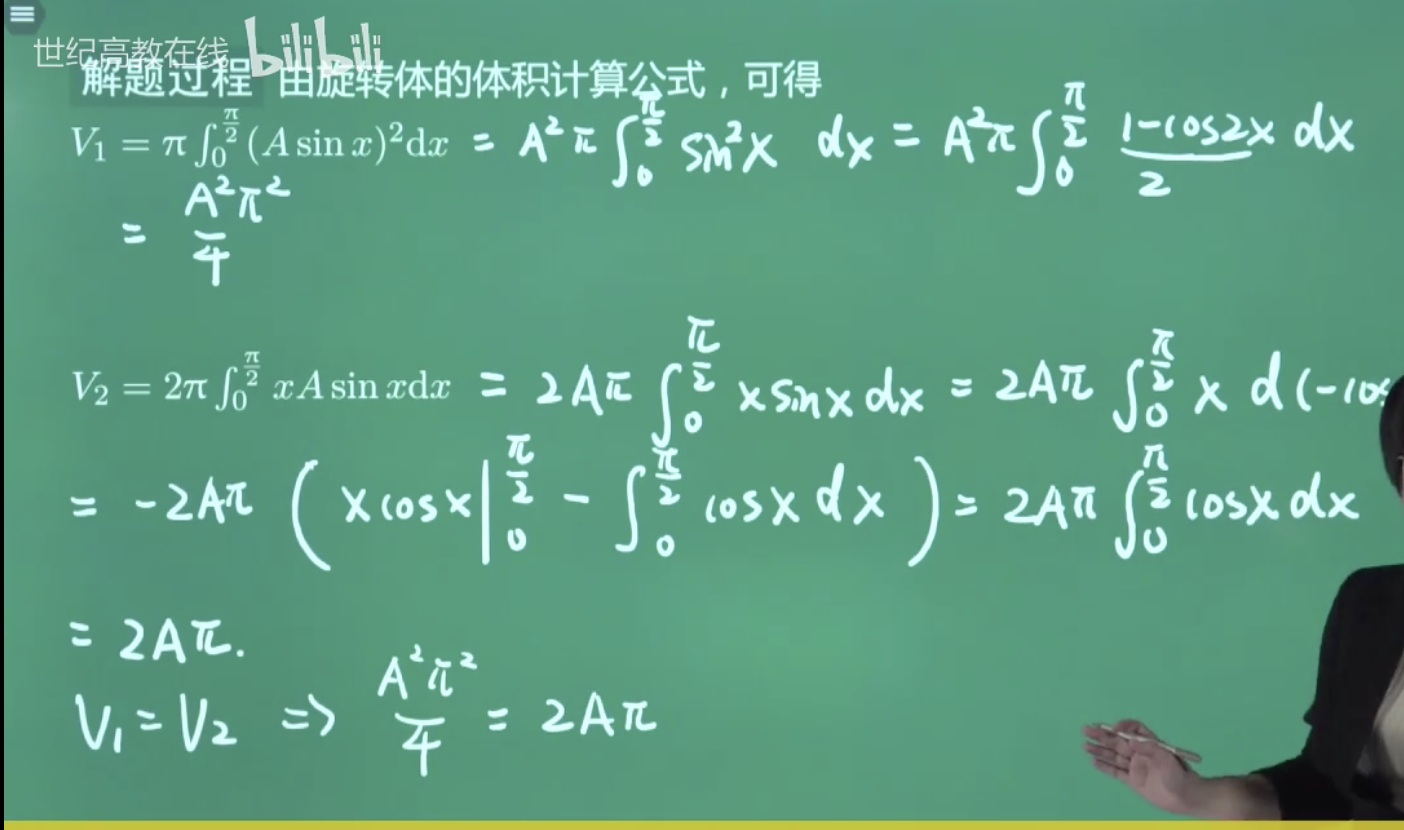 世纪高教在线 bilibili
解题过程 由旋转体的体积计算公式，可得
V₁ = π∫₀^{π/2} (A sin x)²dx = A²π ∫₀^{π/2} sin²x dx = A²π ∫₀^{π/2} (1-cos2x)/2 dx
= A²π²/4
V₂ = 2π∫₀^{π/2} xA sin xdx = 2Aπ ∫₀^{π/2} x sinx dx = 2Aπ ∫₀^{π/2} x d(-cos
= -2Aπ ( x cosx |₀^{π/2} - ∫₀^{π/2} cosx dx ) = 2Aπ ∫₀^{π/2} cosx dx
= 2Aπ.
V₁ = V₂ => A²π²/4 = 2Aπ